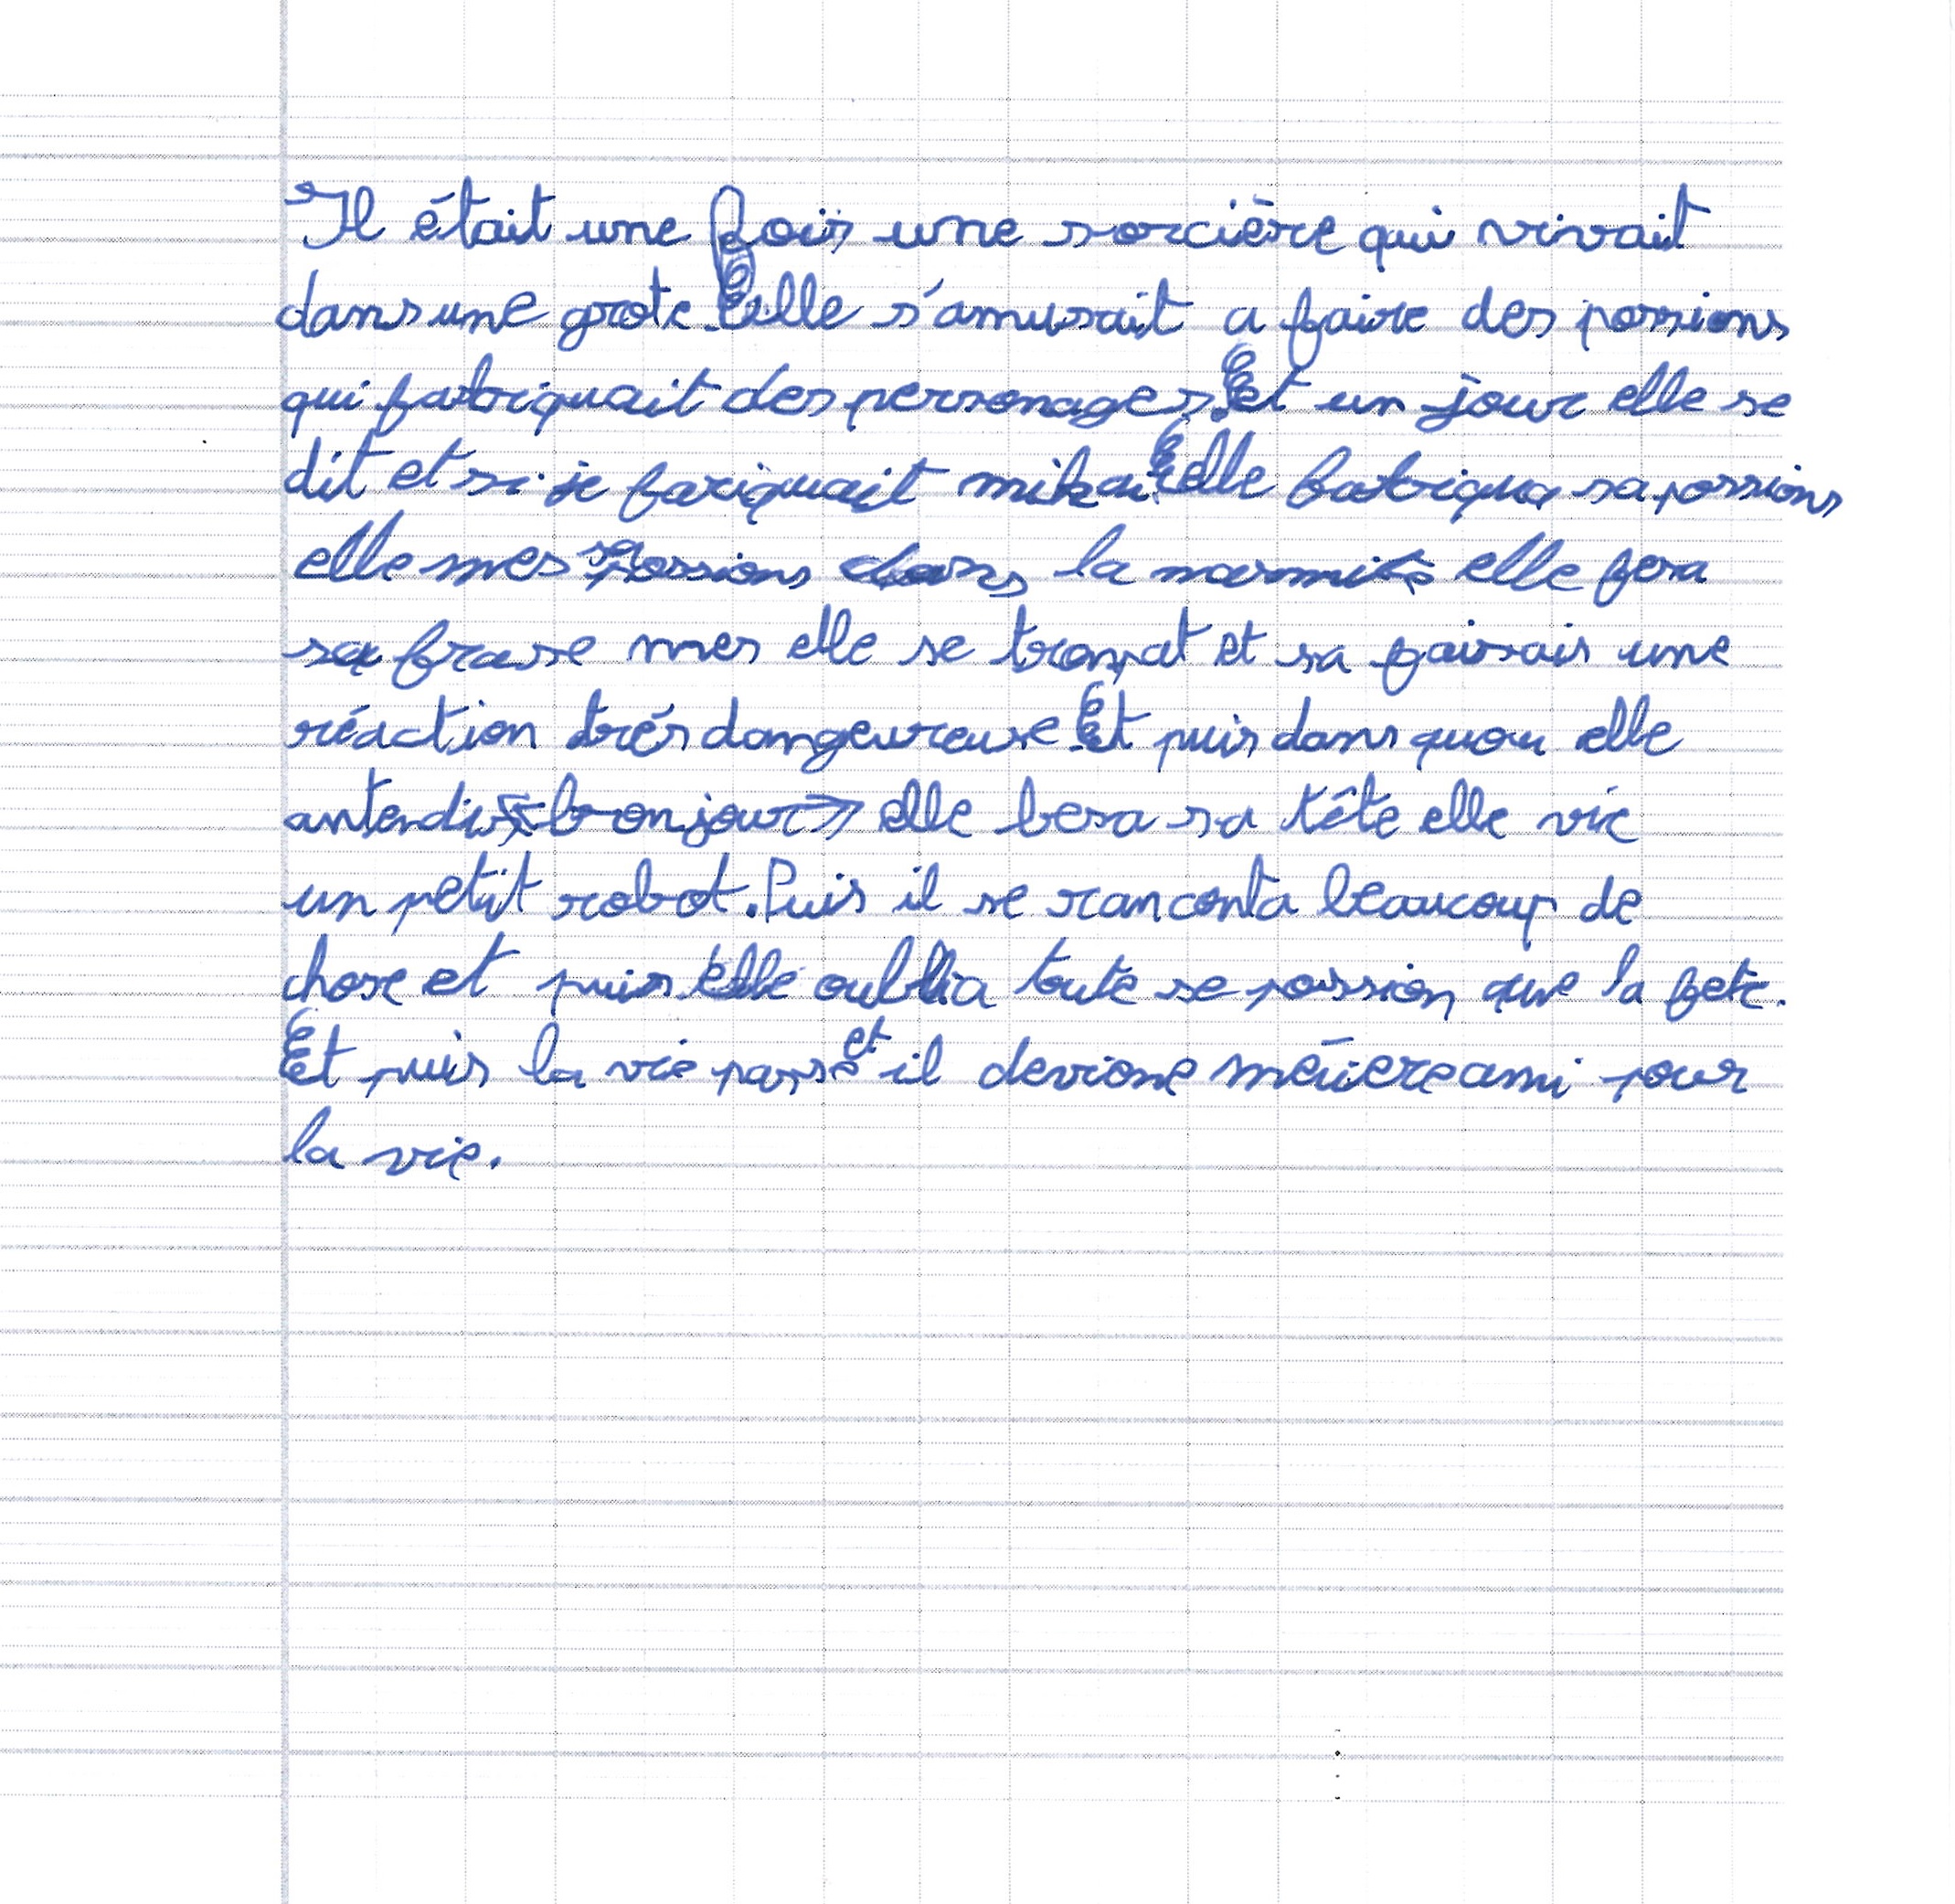 Il était une fois une sorcière qui vivait
dans une grote. Elle s'amusait a faire des possions
qui fabriquait des personages. Et un jour elle se
dit et si je fariquait mikai. Elle fabriqua sa possions
elle mes sa possions dans la marmite elle fesa
sa frase mes elle se trompat et sa faisais une
réaction trés dangeureuse. Et puis dans quou elle
antendis « bonjour » elle besa sa tête elle vie
un petit robot. Puis il se ranconta beaucoup de
chose et puis elle oublia toute se possion que la fete.
Et puis la vie passe et il devione méiere ami pour
la vie.